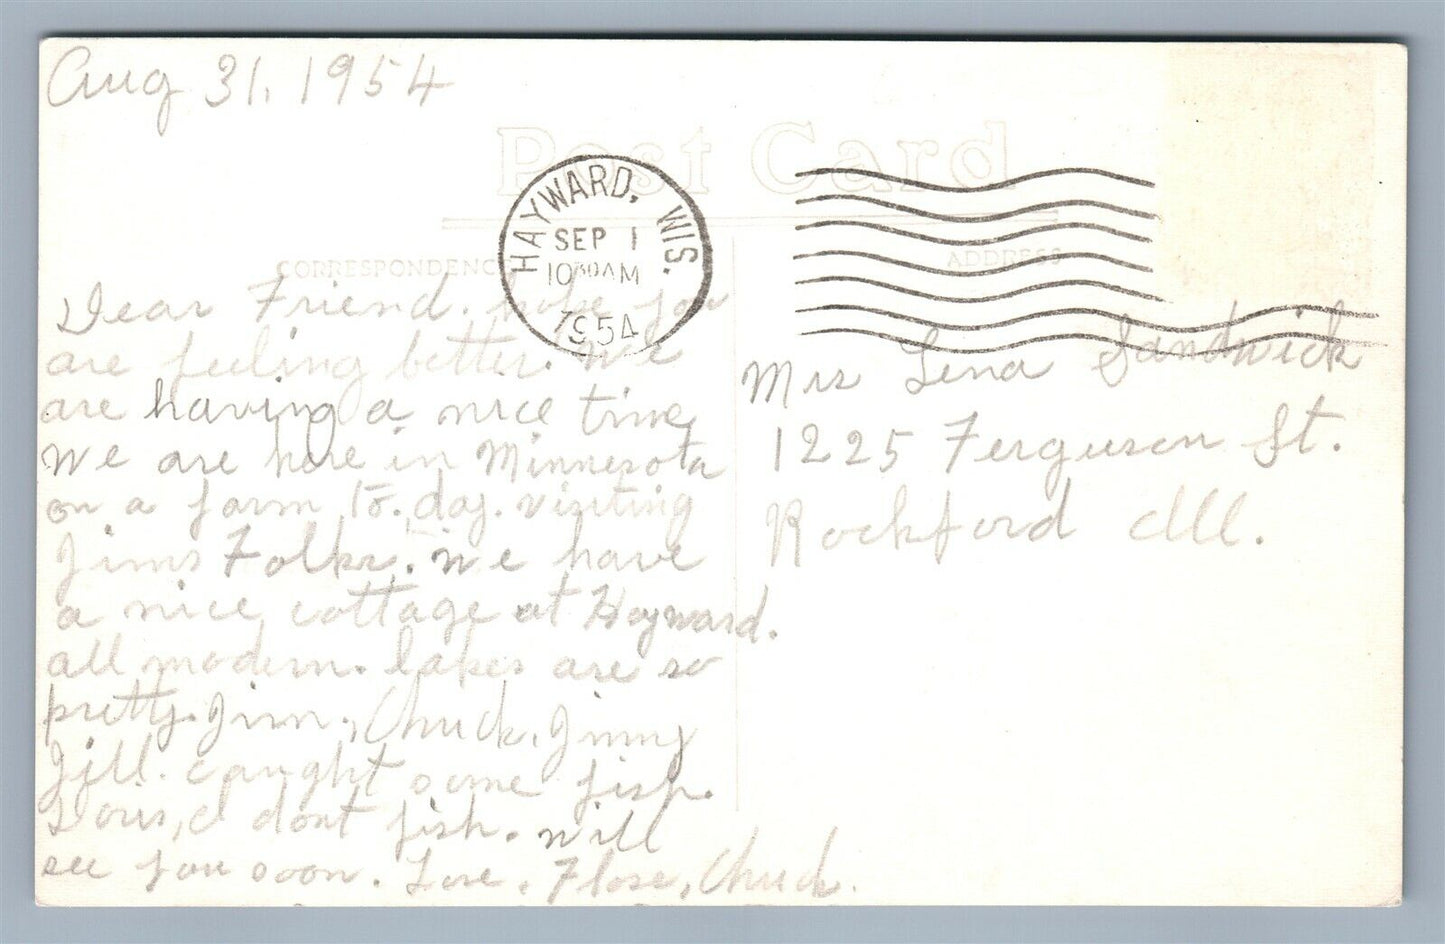 Aug 31, 1954
Post Card
HAYWARD, WIS.
SEP 1
10 30 AM
1954
CORRESPONDENCE
ADDRESS
Dear Friend. hope you
are feeling better. We
are having a nice time
We are here in Minnesota
on a farm to. day. visiting
Jims Folks. We have
a nice cottage at Hayward.
all modern. lakes are so
pretty. Jim., Chuck, Jimmy
Jill. caught some fish.
Lois, I dont fish. will
see you soon. Love. Flose, Chuck.
Mrs Lena Sandwick
1225 Ferguson St.
Rockford Ill.